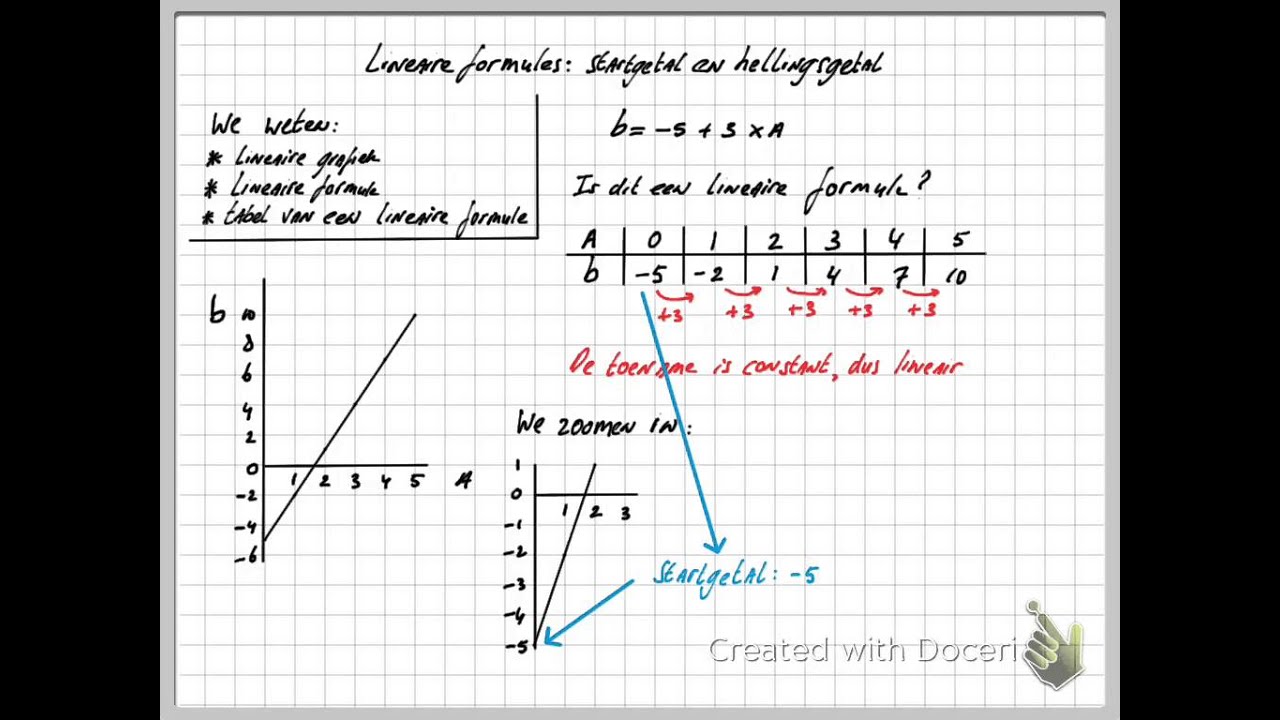 Lineaire formules: startgetal en hellingsgetal
We weten:
* lineaire grafiek
* lineaire formule
* tabel van een lineaire formule
b = -5 + 3 × A
Is dit een lineaire formule?
A 0 1 2 3 4 5
b -5 -2 1 4 7 10
+3 +3 +3 +3 +3
De toename is constant, dus lineair
b
10
8
6
4
2
0
-2
-4
-6
1 2 3 4 5 A
We zoomen in:
1
0
-1
-2
-3
-4
-5
1 2 3
Startgetal: -5
Created with Doceri